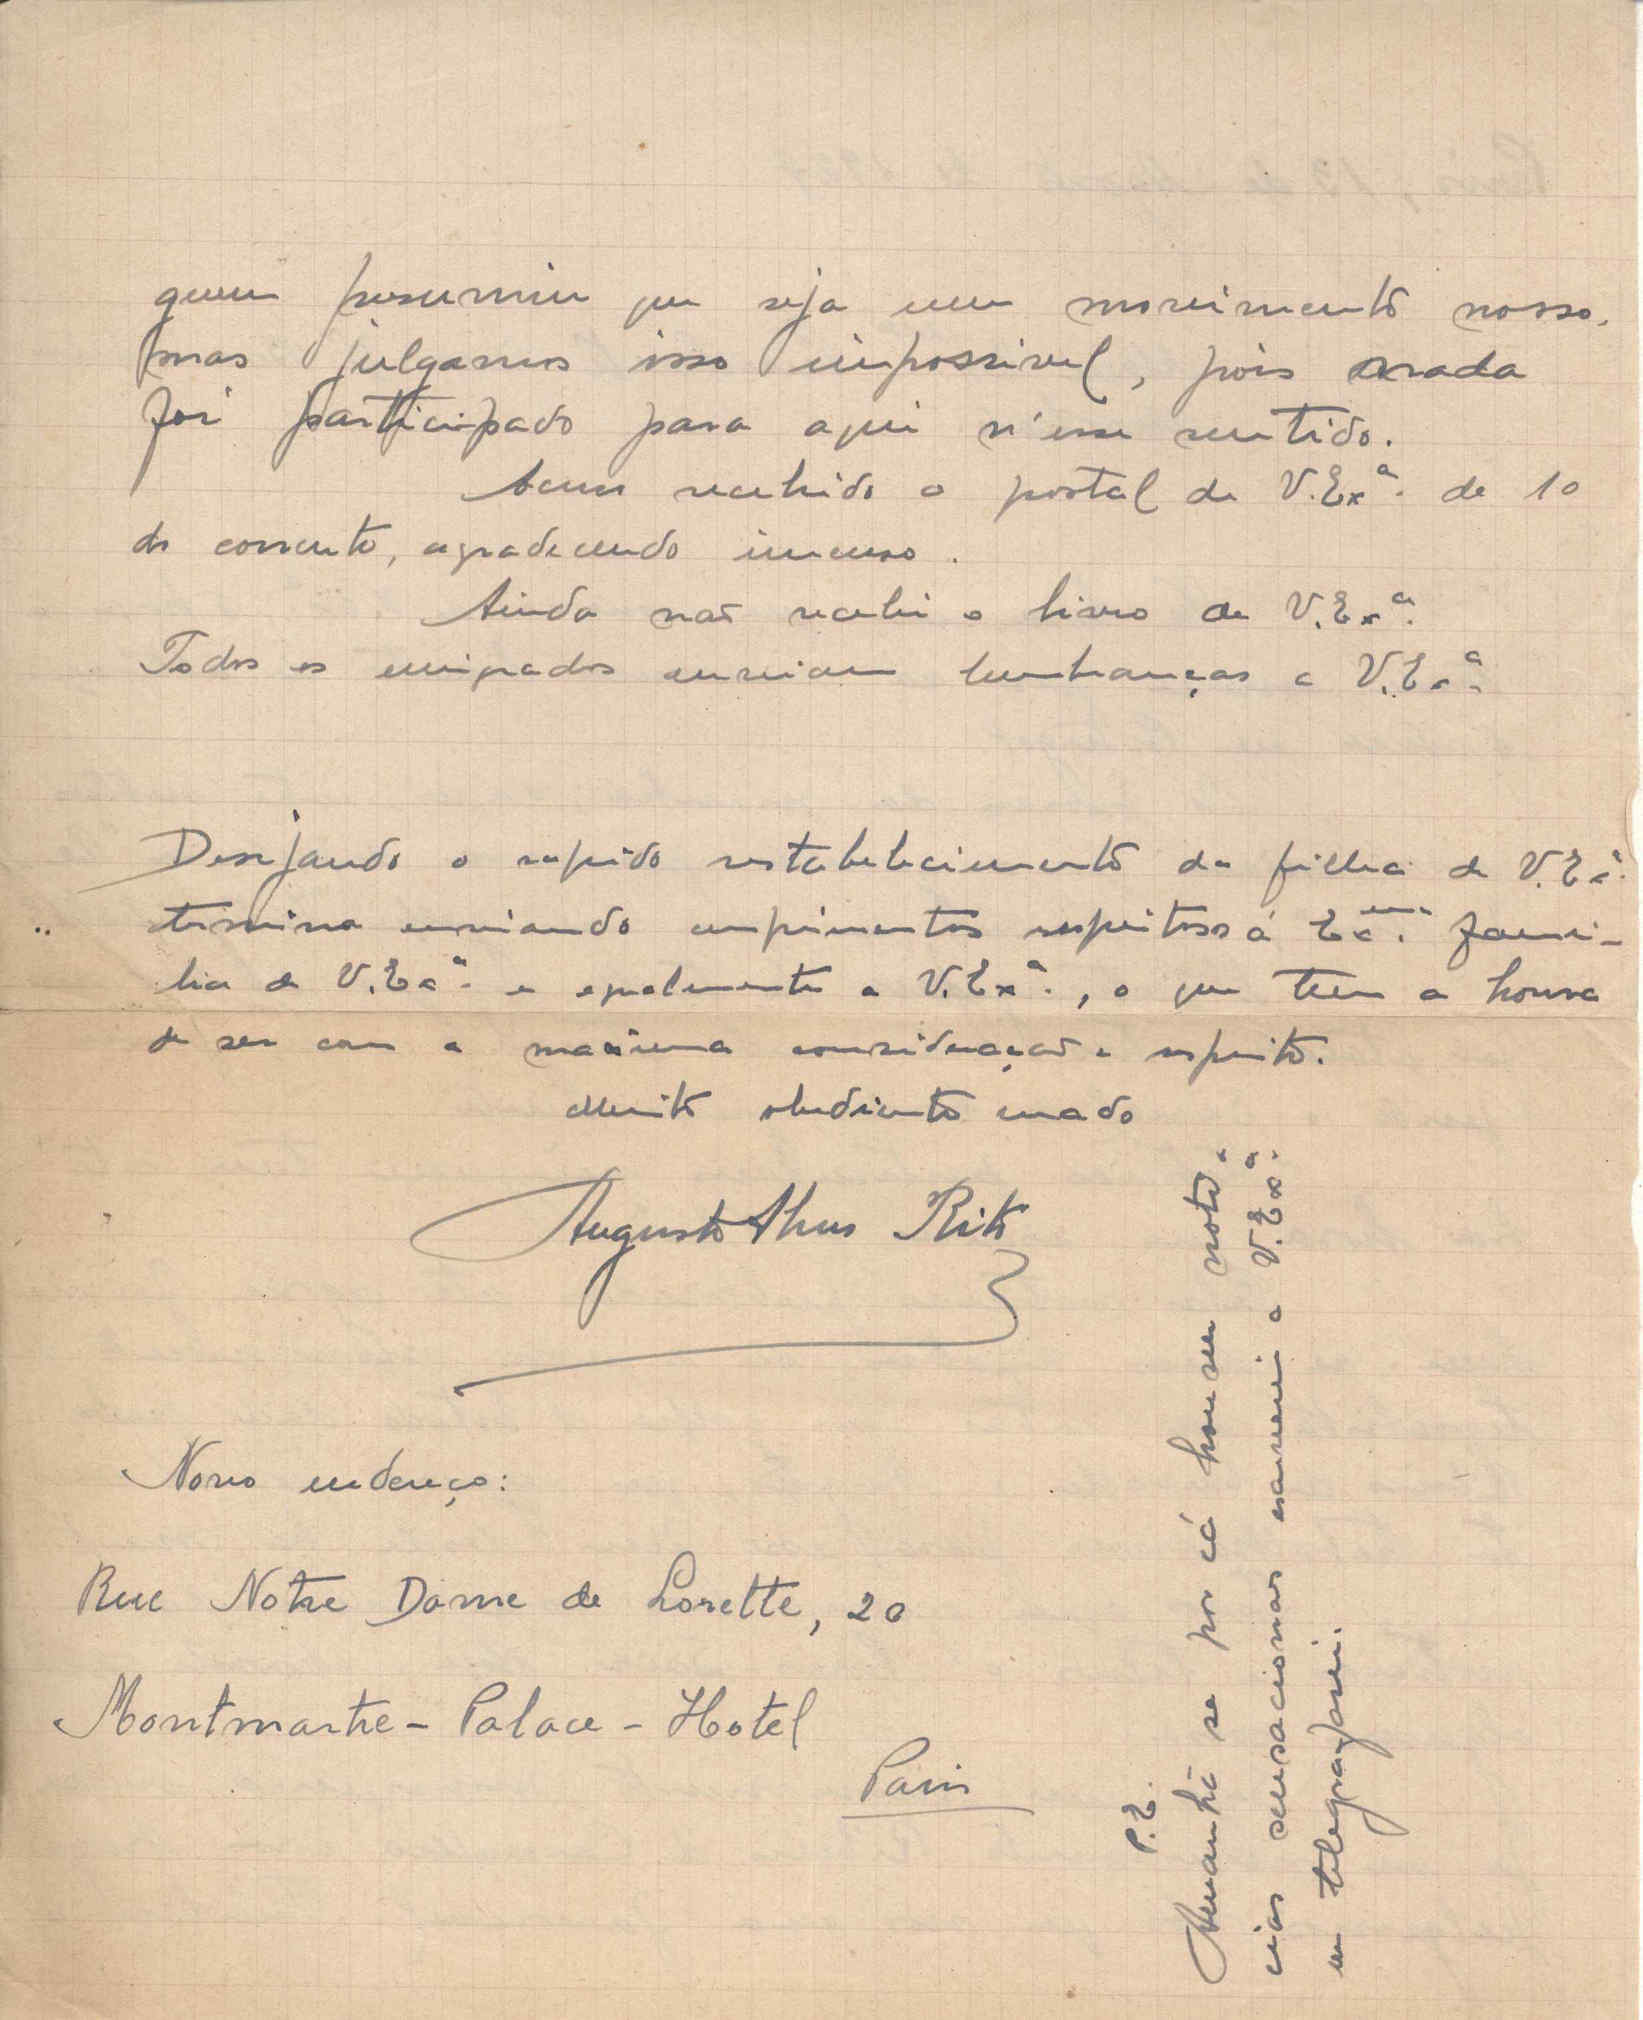 quem presumiu que seja um movimento nosso,
mas julgamos isso impossivel, pois nada
foi participado para aqui n'esse sentido.
Acuso recebido o postal de V. Exª. de 10
do corrente, agradecendo imenso.
Ainda não recebi o livro de V. Exª.
Todos os emigrados enviam lembranças a V. Exª.
Desejando o rapido restabelecimento da filha de V. Exª.
termina enviando cumprimentos respeitosos á Exma. fami-
lia de V. Exª. e egualmente a V. Exª., o que tem a honra
de ser com a maxima consideração e respeito.
Muito obediente criado
Augusto Rito
Novo endereço:
Rue Notre Dame de Lorette, 20
Montmartre - Palace - Hotel
Paris
P.E.
Amanhã se por cá houver noti-
cias sensacionais escreverei a V. Exª.
ou telegrafarei.